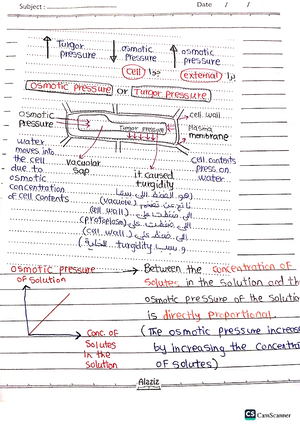 Subject : Date / /
↑ Turgor pressure ↓ osmotic pressure ↑ osmotic pressure
cell جوا external برا
osmotic pressure or Turgor pressure
cell wall
osmotic pressure
Turgor pressure
Plasma membrane
water moves into the cell due to osmotic concentration of cell contents
vacuolar sap
it caused turgidity
cell contents press on water
(vacuole)
(cell wall)
(protoplasm)
(cell wall)
turgidity
osmotic pressure of solution
Between the concentration of
solutes in the solution and the
osmotic pressure of the solution
is directly proportional.
Conc. of Solutes in the solution
(The osmotic pressure increase
by increasing the concentra
of solutes)
Alaziz
CS CamScanner